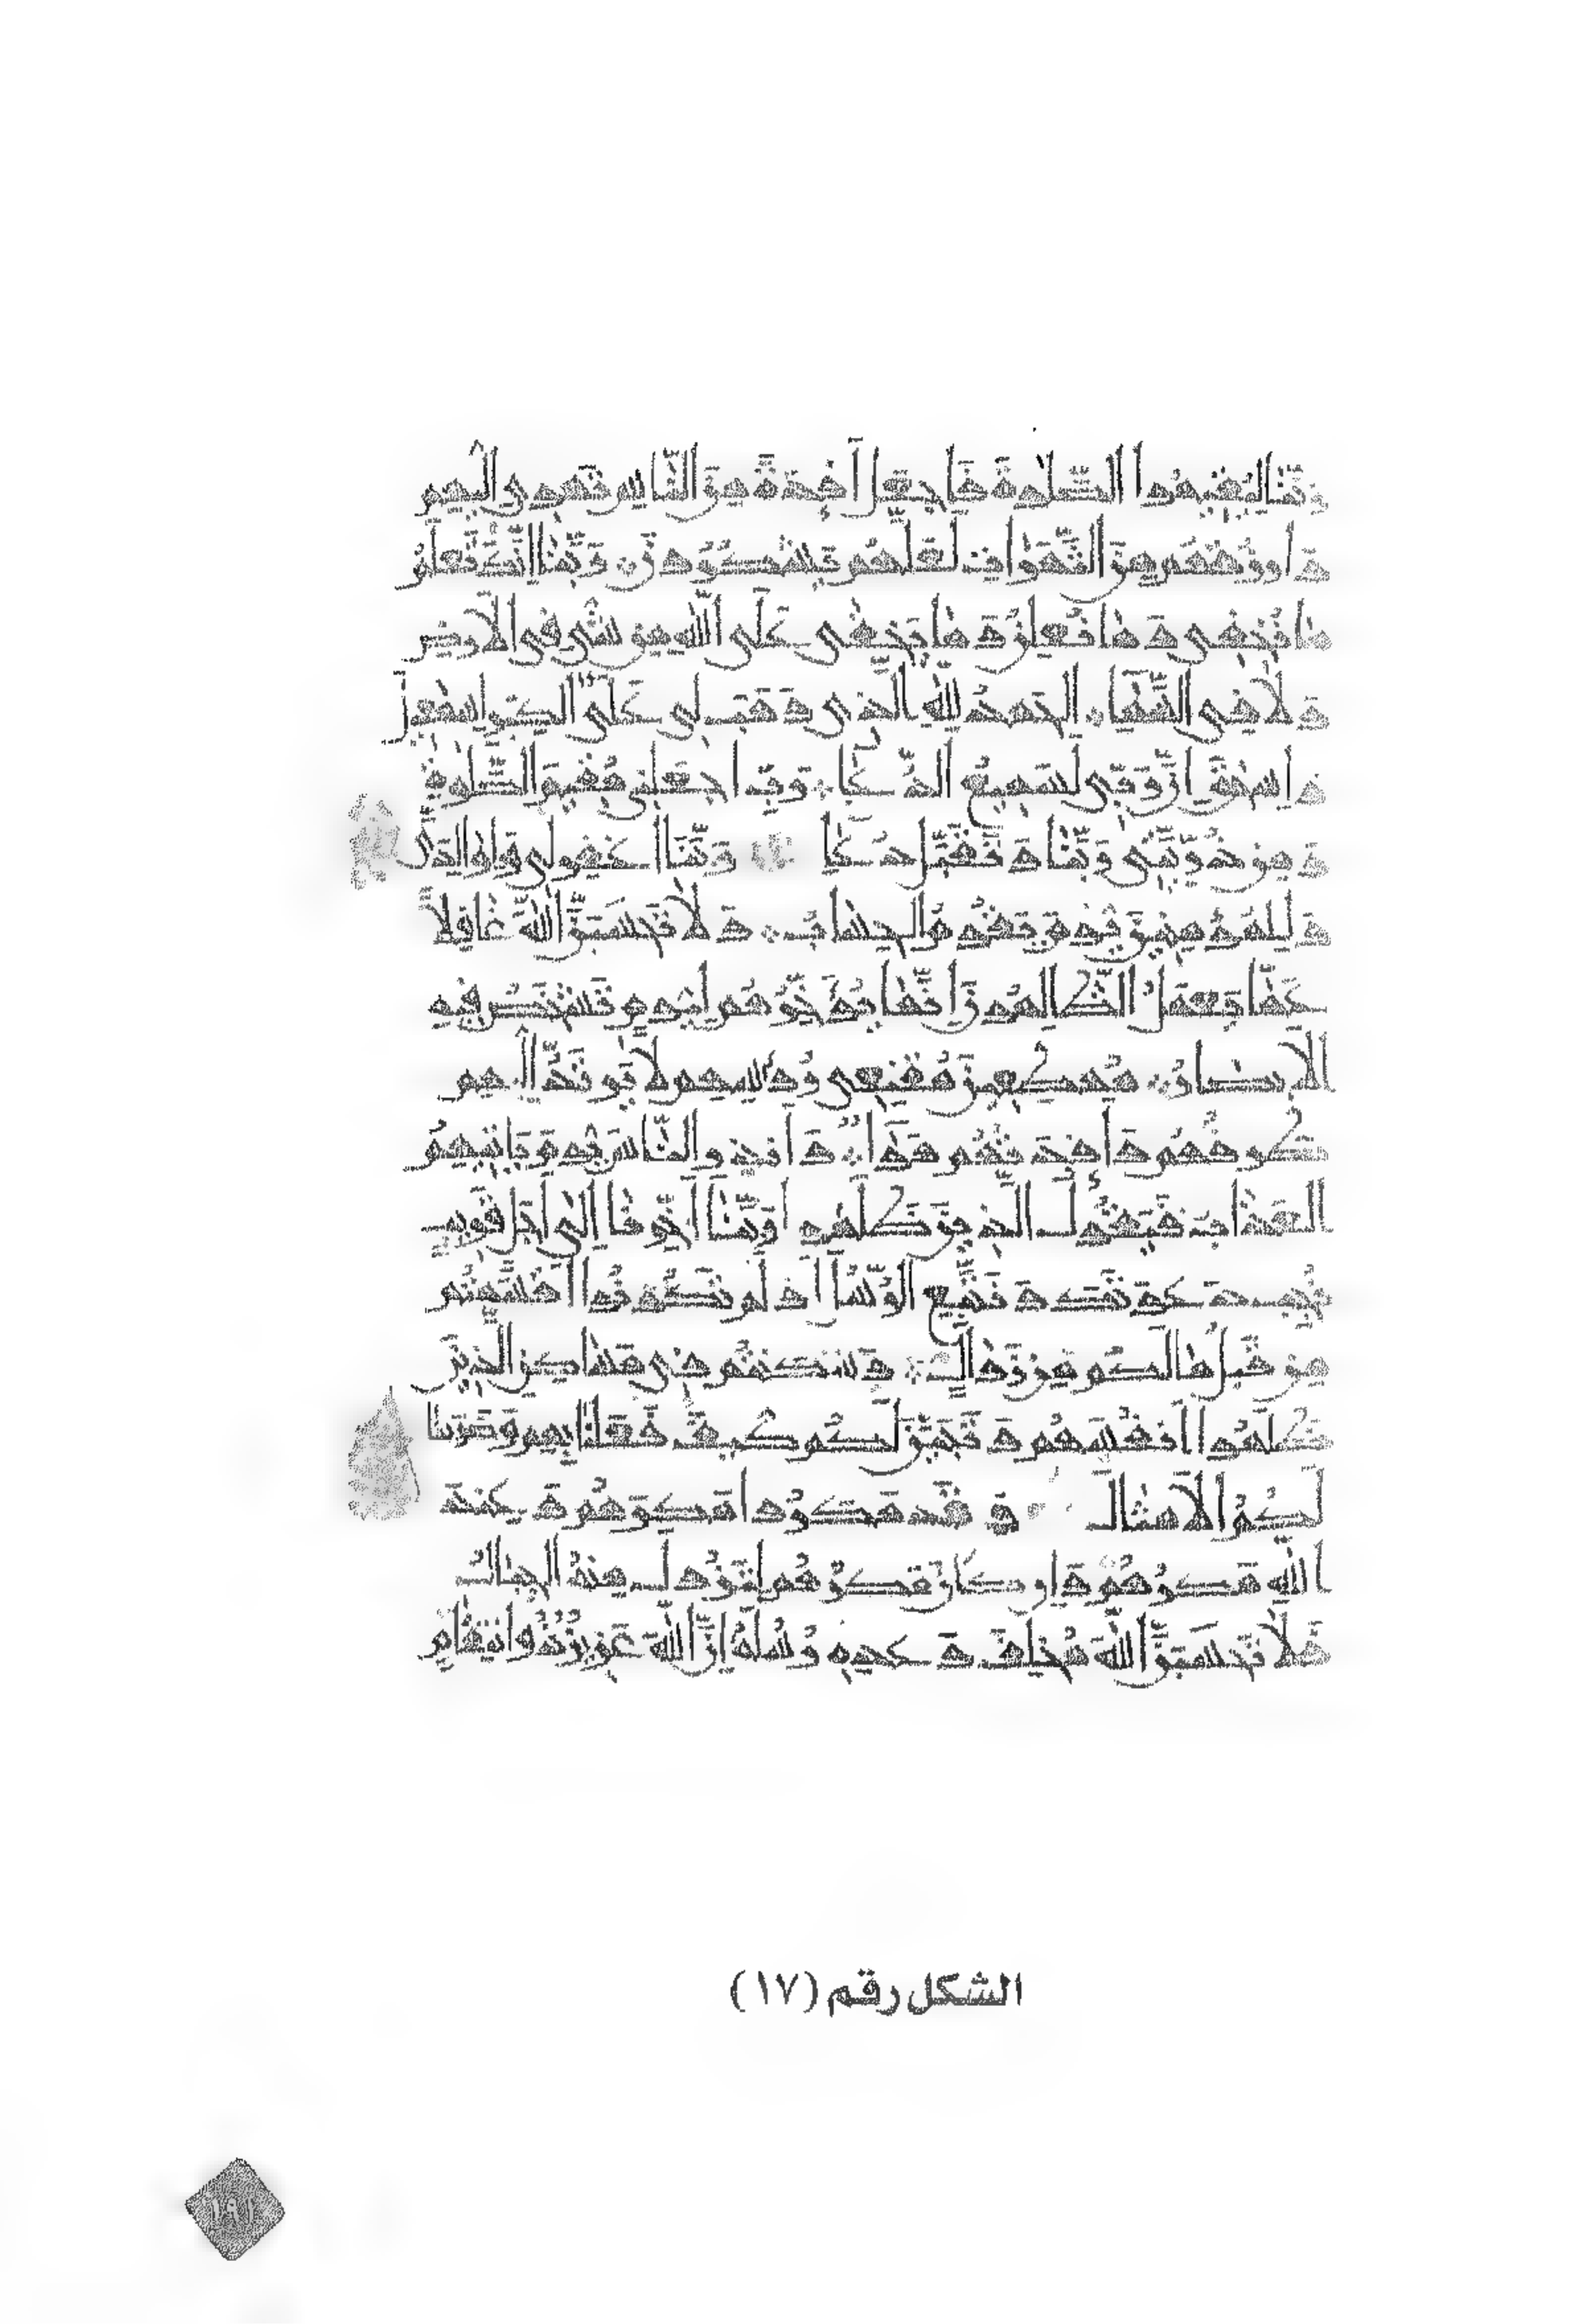 رَبَّنَا لِيُقِيمُوا الصَّلَوةَ فَاجْعَلْ أَفْئِدَةً مِنَ النَّاسِ تَهْوِي إِلَيْهِمْ
وَارْزُقْهُمْ مِنَ الثَّمَرَاتِ لَعَلَّهُمْ يَشْكُرُونَ رَبَّنَا إِنَّكَ تَعْلَمُ
مَا نُخْفِي وَمَا نُعْلِنُ وَمَا يَخْفَى عَلَى اللَّهِ مِنْ شَيْءٍ فِي الْأَرْضِ
وَلَا فِي السَّمَاءِ الْحَمْدُ لِلَّهِ الَّذِي وَهَبَ لِي عَلَى الْكِبَرِ إِسْمَعِيلَ
وَإِسْحَقَ إِنَّ رَبِّي لَسَمِيعُ الدُّعَاءِ رَبِّ اجْعَلْنِي مُقِيمَ الصَّلَوةِ
وَمِنْ ذُرِّيَّتِي رَبَّنَا وَتَقَبَّلْ دُعَاءِ رَبَّنَا اغْفِرْ لِي وَلِوَالِدَيَّ
وَلِلْمُؤْمِنِينَ يَوْمَ يَقُومُ الْحِسَابُ وَلَا تَحْسَبَنَّ اللَّهَ غَافِلًا
عَمَّا يَعْمَلُ الظَّالِمُونَ إِنَّمَا يُؤَخِّرُهُمْ لِيَوْمٍ تَشْخَصُ فِيهِ
الْأَبْصَارُ مُهْطِعِينَ مُقْنِعِي رُءُوسِهِمْ لَا يَرْتَدُّ إِلَيْهِمْ
طَرْفُهُمْ وَأَفْئِدَتُهُمْ هَوَاءٌ وَأَنْذِرِ النَّاسَ يَوْمَ يَأْتِيهِمُ
الْعَذَابُ فَيَقُولُ الَّذِينَ ظَلَمُوا رَبَّنَا أَخِّرْنَا إِلَى أَجَلٍ قَرِيبٍ
نُجِبْ دَعْوَتَكَ وَنَتَّبِعِ الرُّسُلَ أَوَلَمْ تَكُونُوا أَقْسَمْتُمْ
مِنْ قَبْلُ مَا لَكُمْ مِنْ زَوَالٍ وَسَكَنْتُمْ فِي مَسَاكِنِ الَّذِينَ
ظَلَمُوا أَنْفُسَهُمْ وَتَبَيَّنَ لَكُمْ كَيْفَ فَعَلْنَا بِهِمْ وَضَرَبْنَا
لَكُمُ الْأَمْثَالَ وَقَدْ مَكَرُوا مَكْرَهُمْ وَعِنْدَ
اللَّهِ مَكْرُهُمْ وَإِنْ كَانَ مَكْرُهُمْ لِتَزُولَ مِنْهُ الْجِبَالُ
فَلَا تَحْسَبَنَّ اللَّهَ مُخْلِفَ وَعْدِهِ رُسُلَهُ إِنَّ اللَّهَ عَزِيزٌ ذُو انْتِقَامٍ
الشكل رقم (١٧)
١٩١